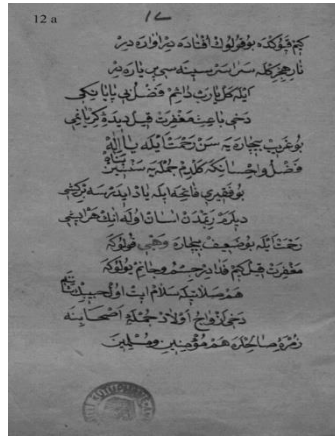 12 a
١٢
كيم قپوكده بو قولوك افتاده در آواره در
نار هجرڭله سراسر سينه سى پر ياره در
ايله كل يارب دائم فضل بى پايانكى
دخى باعث مغفرت قيل ديدۀ كريانمى
بو غريب بيچاره يه سن رحمت ايله يا اله
فضل و احسانكه كلدم جمله يه سنسين پناه
بو فقيرى فاتحه ايله ياد ايدرسه هر كشى
ديلرم ربمدن آسان اوله انك هر ايشى
رحمت ايله بو ضعيف بيچاره وهبى قولوكه
مغفرت قيل كيم فدادر جسم و جانم يولوكه
هم صلاتيله سلام ايت اول حبيبكه
دخى ازواج اولاد جملۀ اصحابنه
زمرۀ صالحلره هم مؤمنين و مسلمين